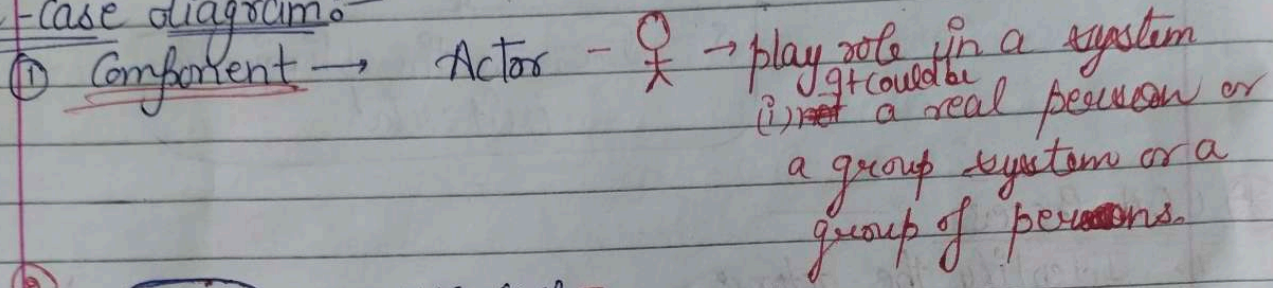 -Case diagram:
① Component → Actor - → play role in a system
It could be
(i) a real person or
a group system or a
group of persons.